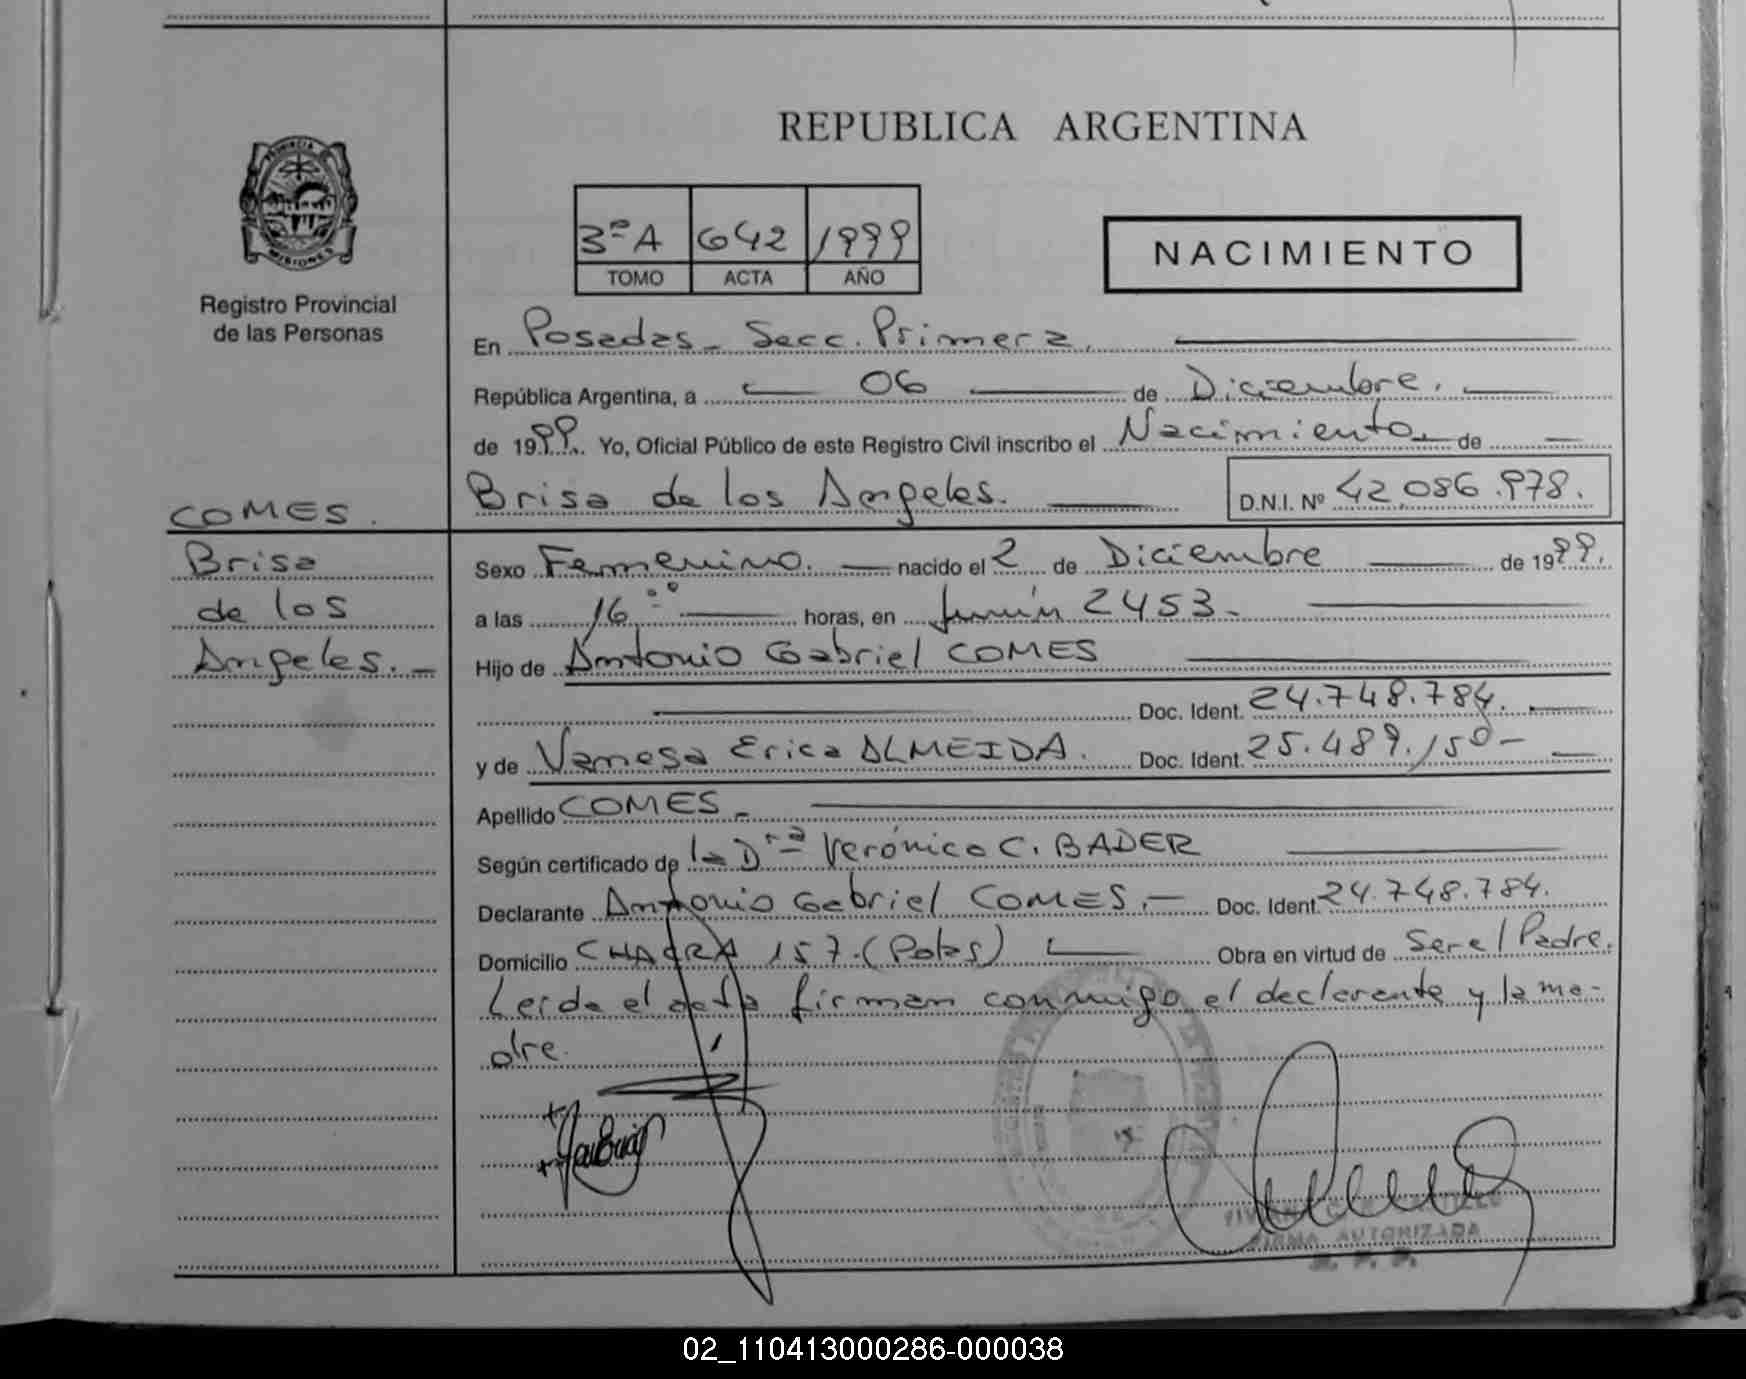 REPUBLICA ARGENTINA
PROVINCIA DE
MISIONES
Registro Provincial
de las Personas
3ºA 642 1999
TOMO ACTA AÑO
NACIMIENTO
En Posadas - Secc. Primera.
República Argentina, a 06 de Diciembre.
de 1999. Yo, Oficial Público de este Registro Civil inscribo el Nacimiento de
Brisa de los Angeles. D.N.I. Nº 42.086.978.
COMES.
Brisa
de los
Angeles. -
Sexo Femenino. nacido el 2 de Diciembre de 1999.
a las 16:00 horas, en Junín 2453-
Hijo de Antonio Gabriel COMES
Doc. Ident. 24.748.784.
y de Vanesa Erica ALMEIDA. Doc. Ident. 25.489.150-
Apellido COMES.-
Según certificado de la Drª Verónica C. BADER
Declarante Antonio Gabriel COMES.- Doc. Ident. 24.748.784.
Domicilio CHACRA 157.(Pdas) Obra en virtud de Ser el Padre.
Leída el acta firman conmigo el declarante y la ma-
dre.
FIRMA AUTORIZADA
R. P. P.
02_110413000286-000038